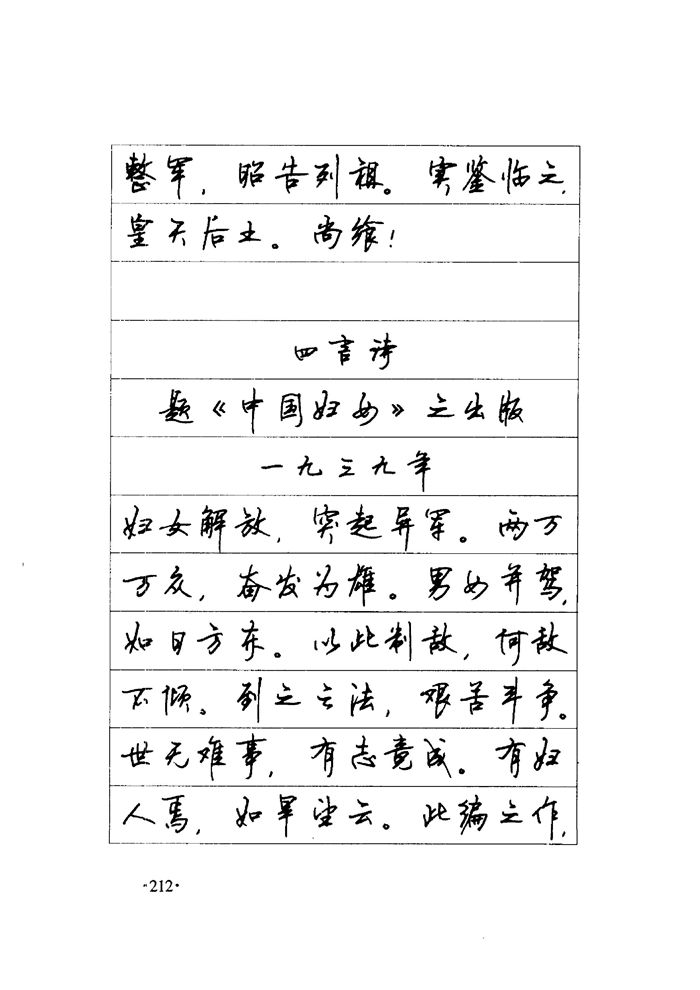 整军，昭告列祖。实鉴临之，
皇天后土。尚飨！
四言诗
题《中国妇女》之出版
一九三九年
妇女解放，突起异军。两万
万众，奋发为雄。男女并驾，
如日方东。以此制敌，何敌
不倾。到之之法，艰苦斗争。
世无难事，有志竟成。有妇
人焉，如旱望云。此编之作，
·212·